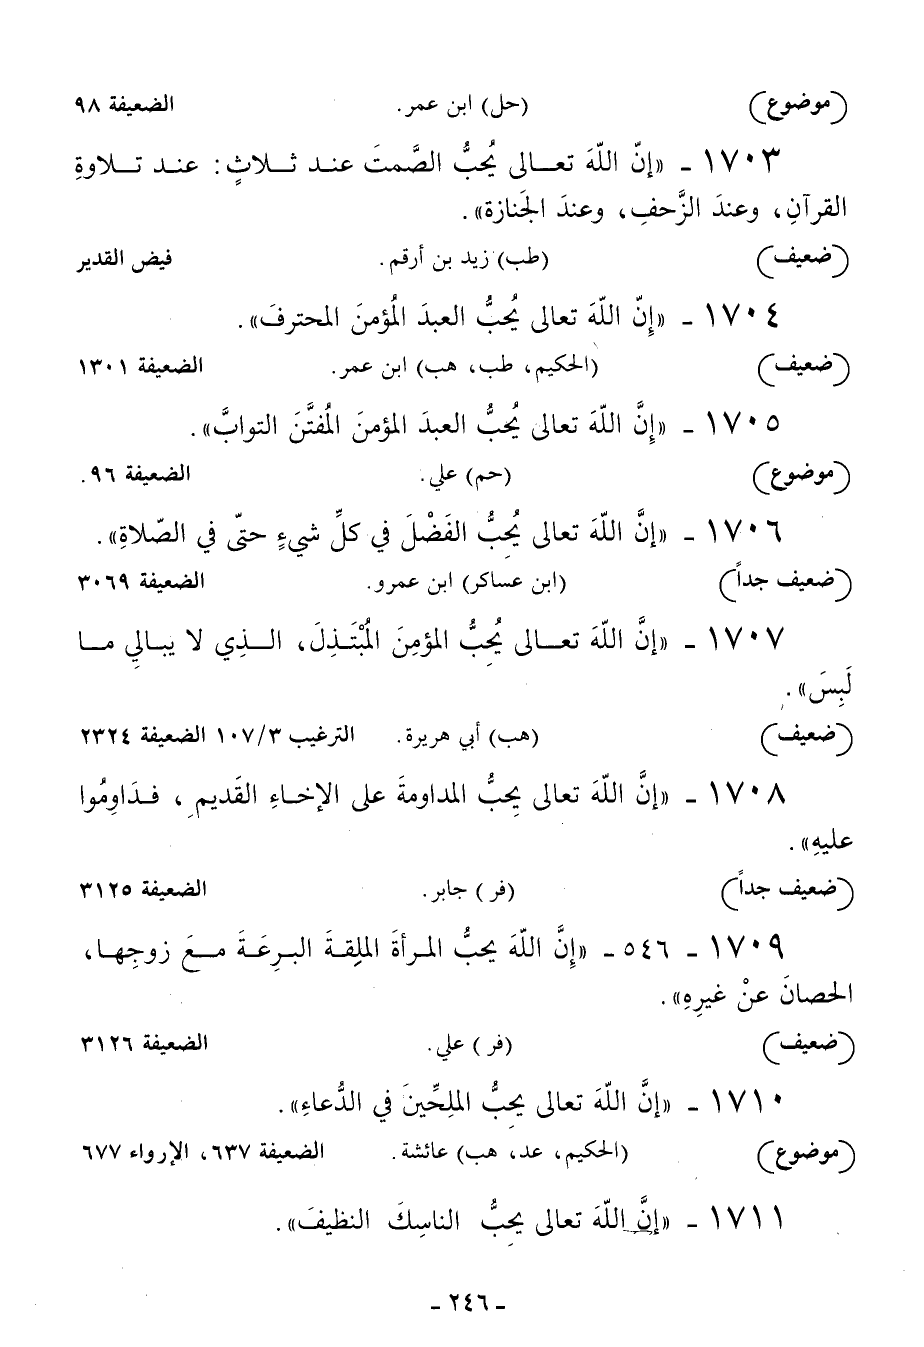 (موضوع) (حل) ابن عمر. الضعيفة ٩٨
١٧٠٣ - «إنّ اللّهَ تعـالى يُحبُّ الصَّمتَ عنـد ثـلاثٍ: عنـد تـلاوةِ
القرآنِ، وعندَ الزَّحفِ، وعندَ الجَنازة».
(ضعيف) (طب) زيد بن أرقم. فيض القدير
١٧٠٤ - «إِنّ اللّهَ تعالى يُحبُّ العبدَ المُؤمنَ المحترفَ».
(ضعيف) (الحكيم، طب، هب) ابن عمر. الضعيفة ١٣٠١
١٧٠٥ - «إِنَّ اللّهَ تعالى يُحبُّ العبدَ المؤمنَ المُفتَّنَ التوابَّ».
(موضوع) (حم) علي. الضعيفة ٩٦.
١٧٠٦ - «إنَّ اللّهَ تعالى يُحِبُّ الفَضْلَ في كلِّ شيءٍ حتّى في الصّلاةِ».
(ضعيف جداً) (ابن عساكر) ابن عمرو. الضعيفة ٣٠٦٩
١٧٠٧ - «إنَّ اللّهَ تعـالى يُحِبُّ المؤمِنَ المُبْتَـذِلَ، الـذِي لا يبـالِي مـا
لَبِسَ».
(ضعيف) (هب) أبي هريرة. الترغيب ١٠٧/٣ الضعيفة ٢٣٢٤
١٧٠٨ - «إنَّ اللّهَ تعالى يحِبُّ المداومةَ على الإخـاءِ القَديمِ، فـدَاوِمُوا
عليهِ».
(ضعيف جداً) (فر) جابر. الضعيفة ٣١٢٥
١٧٠٩ - ٥٤٦ - «إِنَّ اللّهَ يحبُّ المـرأةَ الملِقـةَ البـرِعَـةَ مـعَ زوجِهـا،
الحصانَ عنْ غيرِهِ».
(ضعيف) (فر) علي. الضعيفة ٣١٢٦
١٧١٠ - «إنَّ اللّهَ تعالى يحِبُّ الملِحِّينَ في الدُّعاءِ».
(موضوع) (الحكيم، عد، هب) عائشة. الضعيفة ٦٣٧، الإرواء ٦٧٧
١٧١١ - «إنَّ اللّهَ تعالى يحِبُّ الناسِكَ النظيفَ».
- ٢٤٦ -